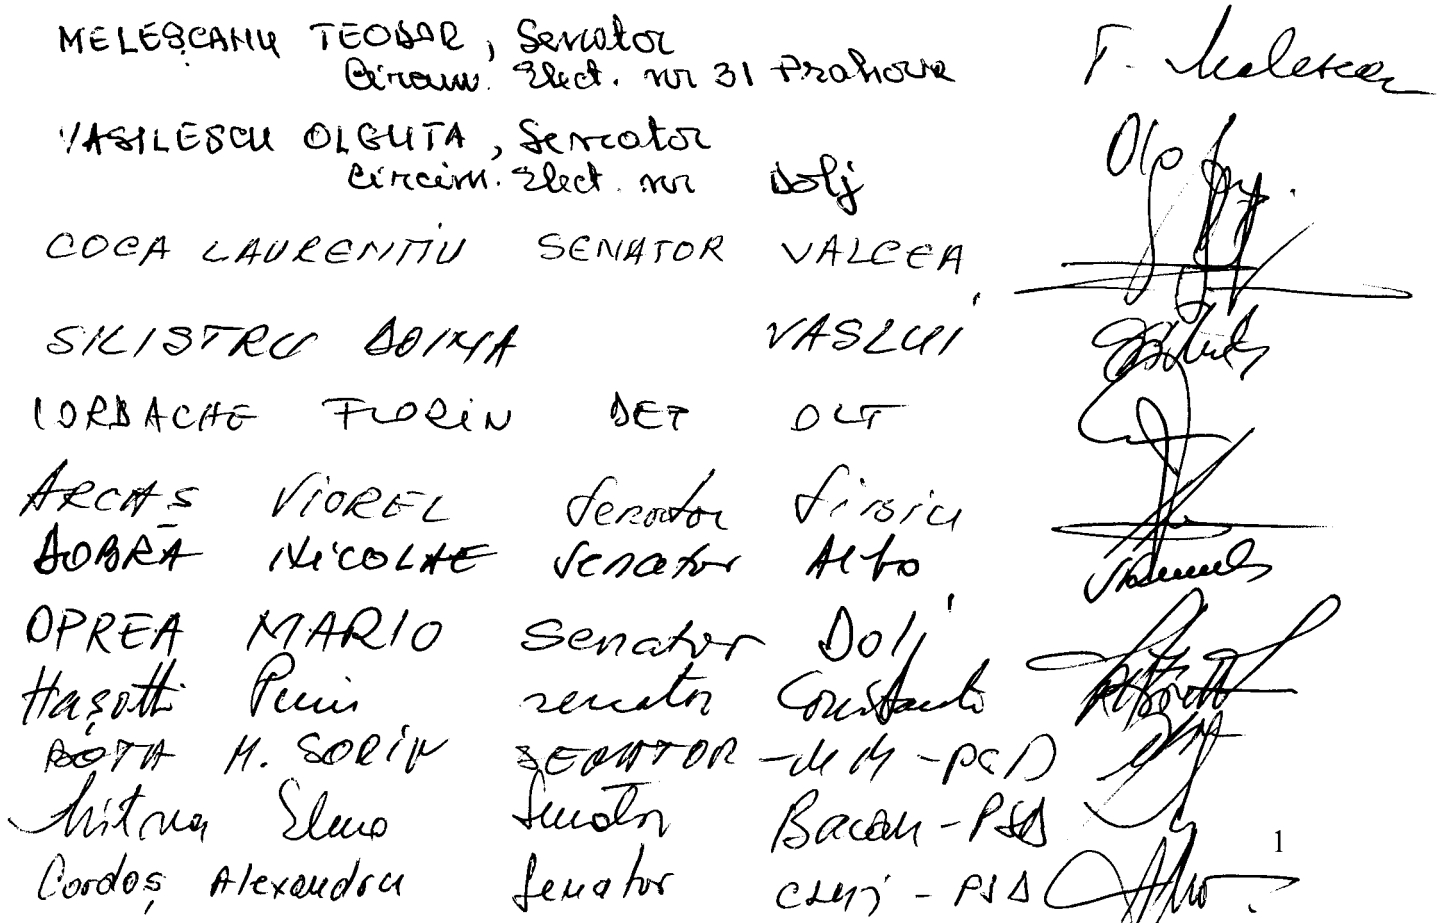 MELEȘCANU TEODOR, Senator
Circum. Elect. nr 31 Prahova T. Melescanu
VASILESCU OLGUTA, Senator
Circum. Elect. nr Dolj
COCA LAURENTIU SENATOR VALCEA
SILISTRU DOINA VASLUI
IORDACHE FLORIN DEP OLT
ARCAȘ VIOREL Senator
DOBRĂ NICOLAE Senator Alba
OPREA MARIO Senator Dolj
Hașotti Puiu senator Constanta
BOTA M. SORIN SENATOR - MM - PSD
Mitrea Elena Senator Bacau - PSD
Cordoș Alexandru Senator CLUJ - PSD
1